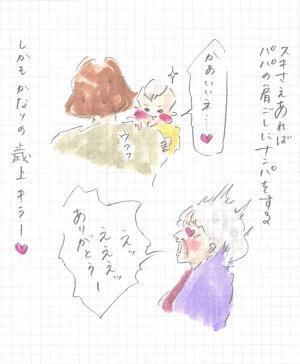 スキさえあれば
パパの肩ごしにナンパをする
かあいいネ…
ウフフ
えッ
えええッ
ありがとうー
しかも かなりの歳上キラー